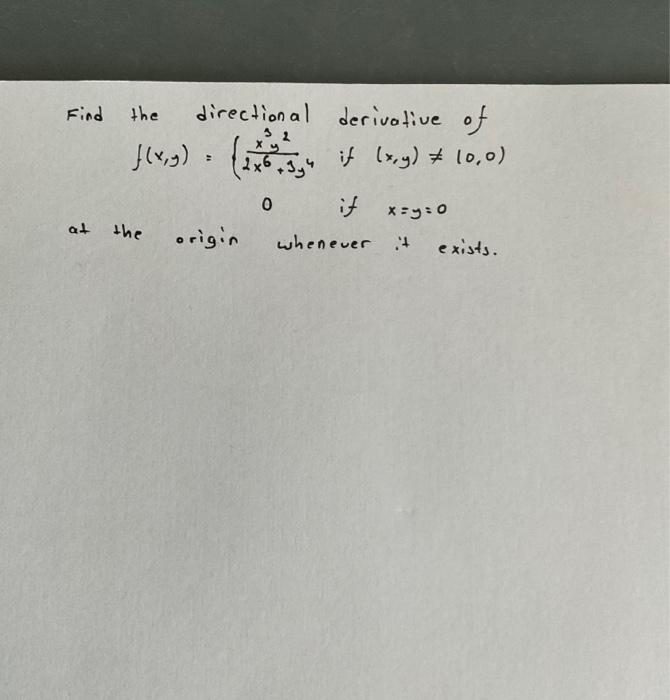 Find the directional derivative of
f(x,y) = { x³y² / 2x⁶+3y⁴ if (x,y) ≠ (0,0)
0 if x=y=0
at the origin whenever it exists.